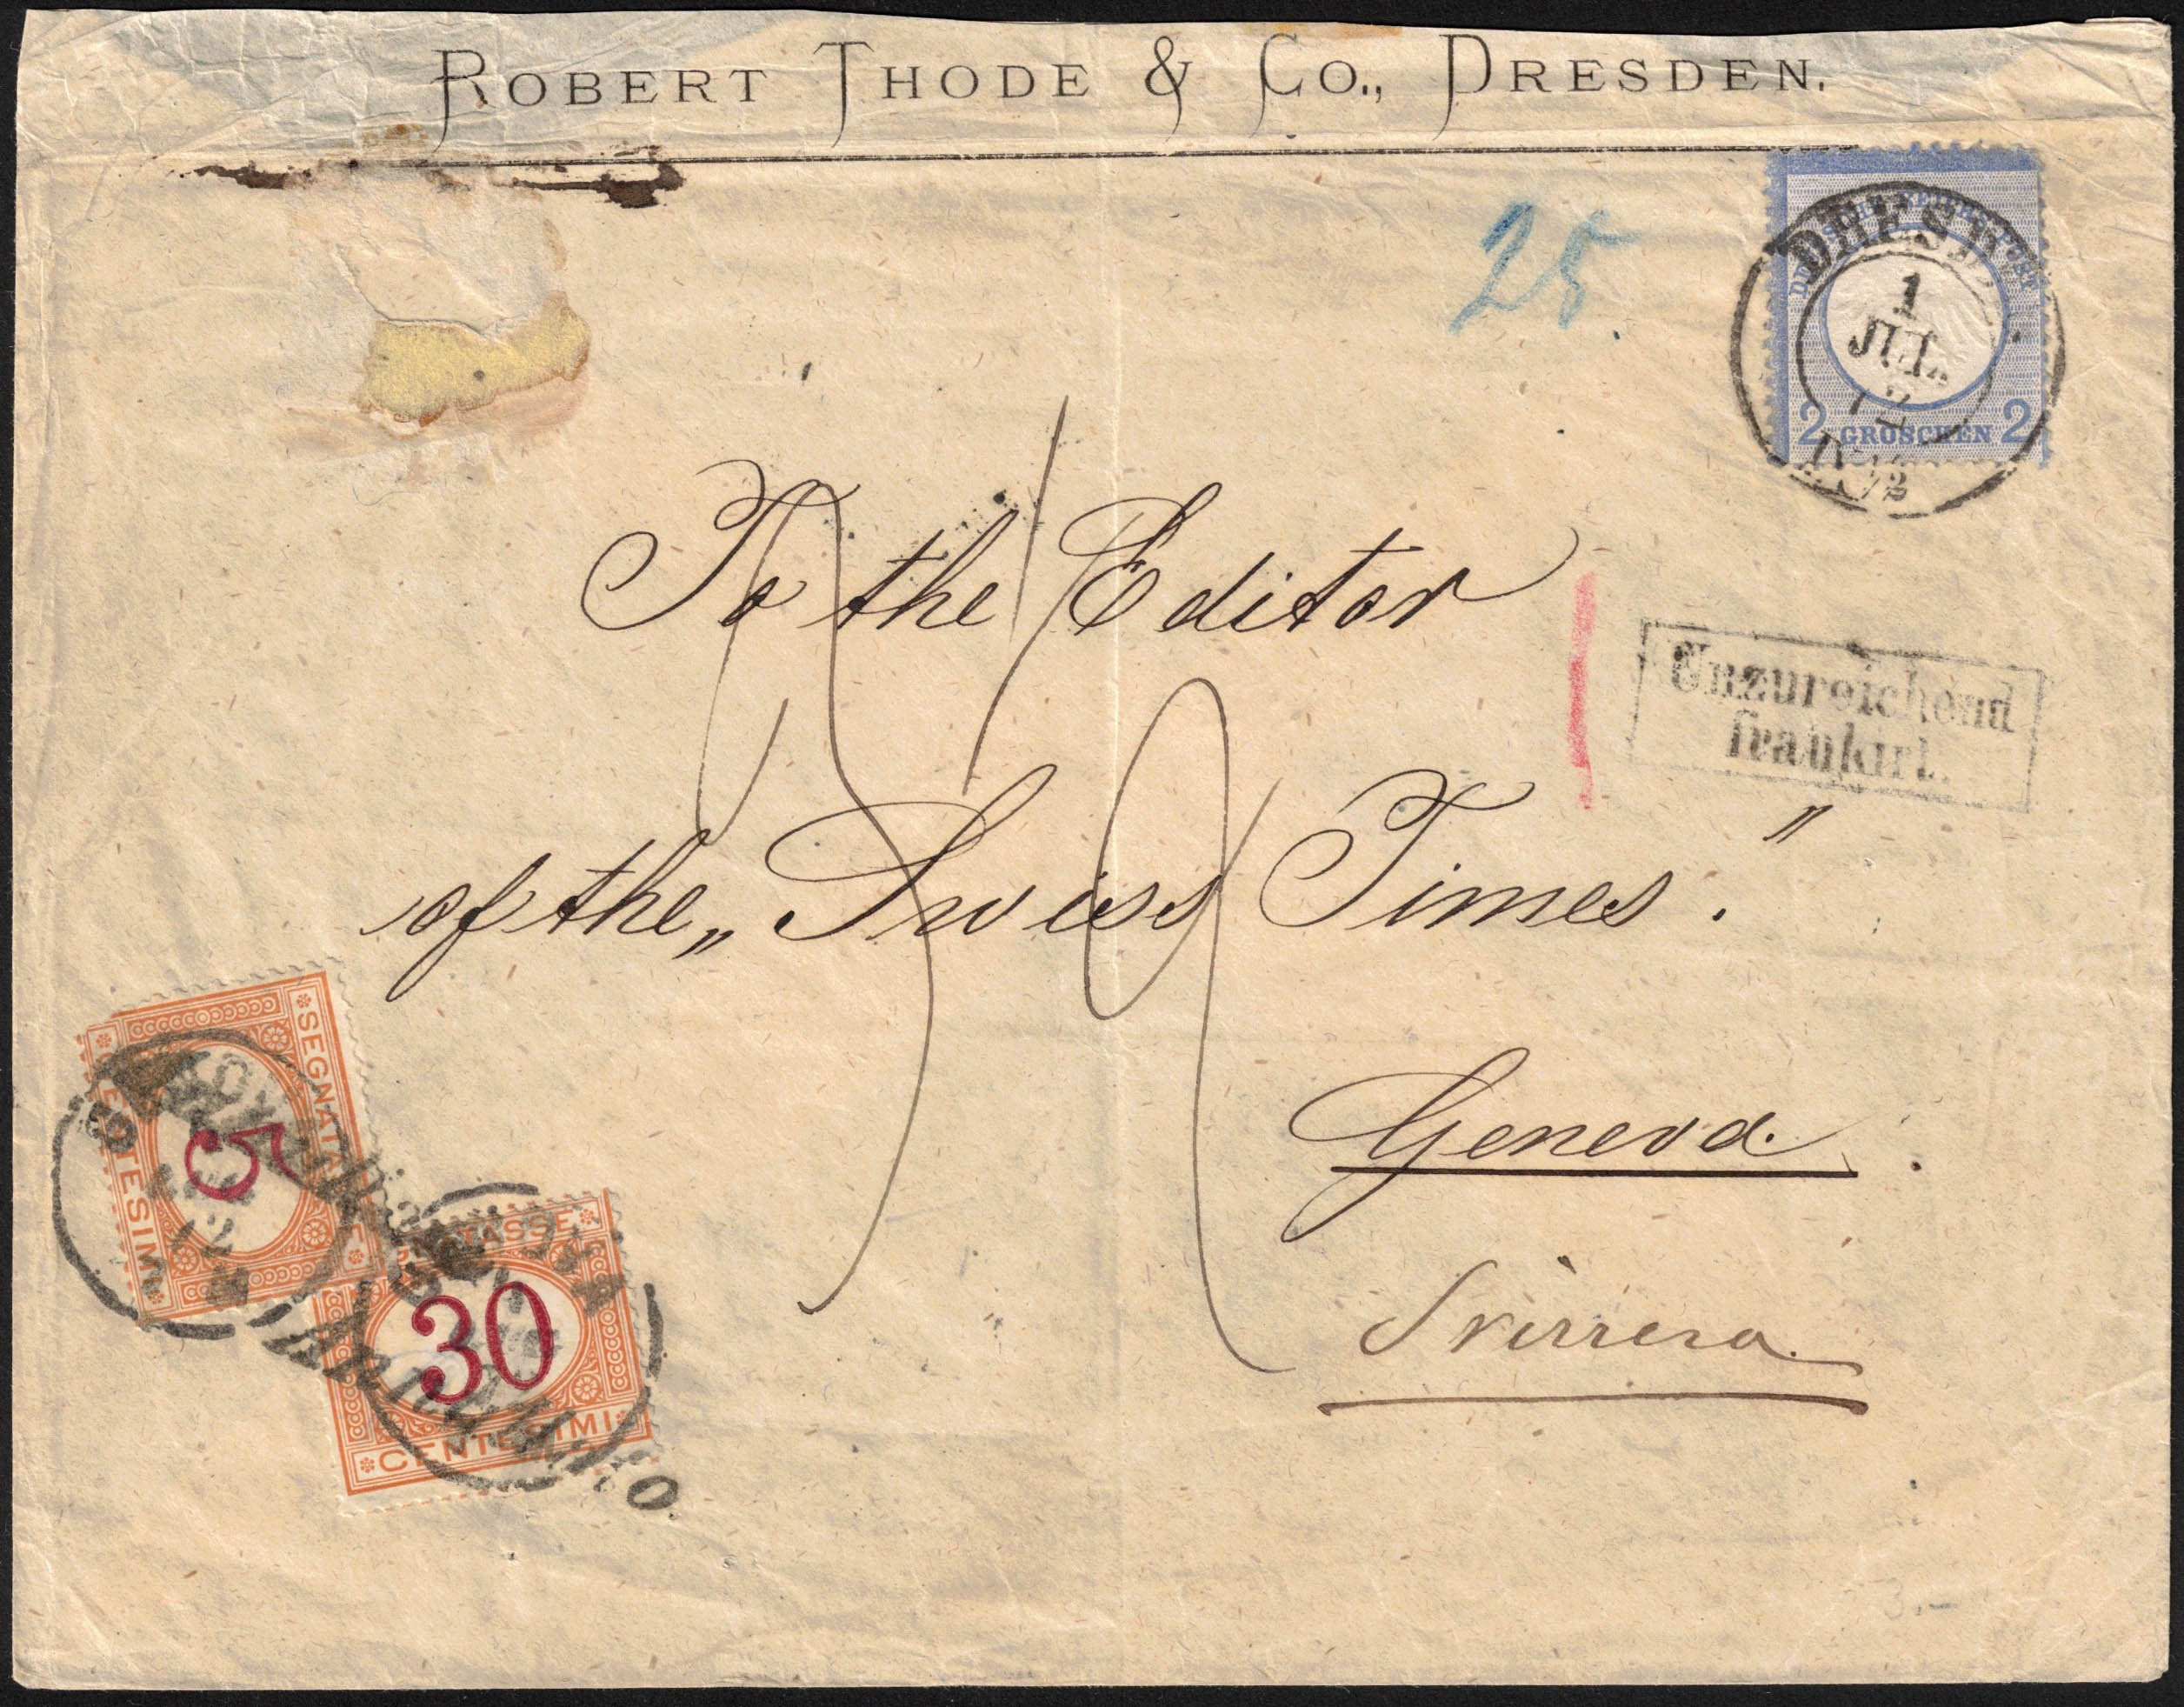 ROBERT THODE & CO., DRESDEN.
25.
DRESD
1
JUL
72
2 GROSCHEN 2
To the Editor
Unzureichend
frankirt.
of the „Swiss Times."
Geneva.
Svizzera
SEGNATA
5
CENTESIMI
TASSE
30
CENTESIMI